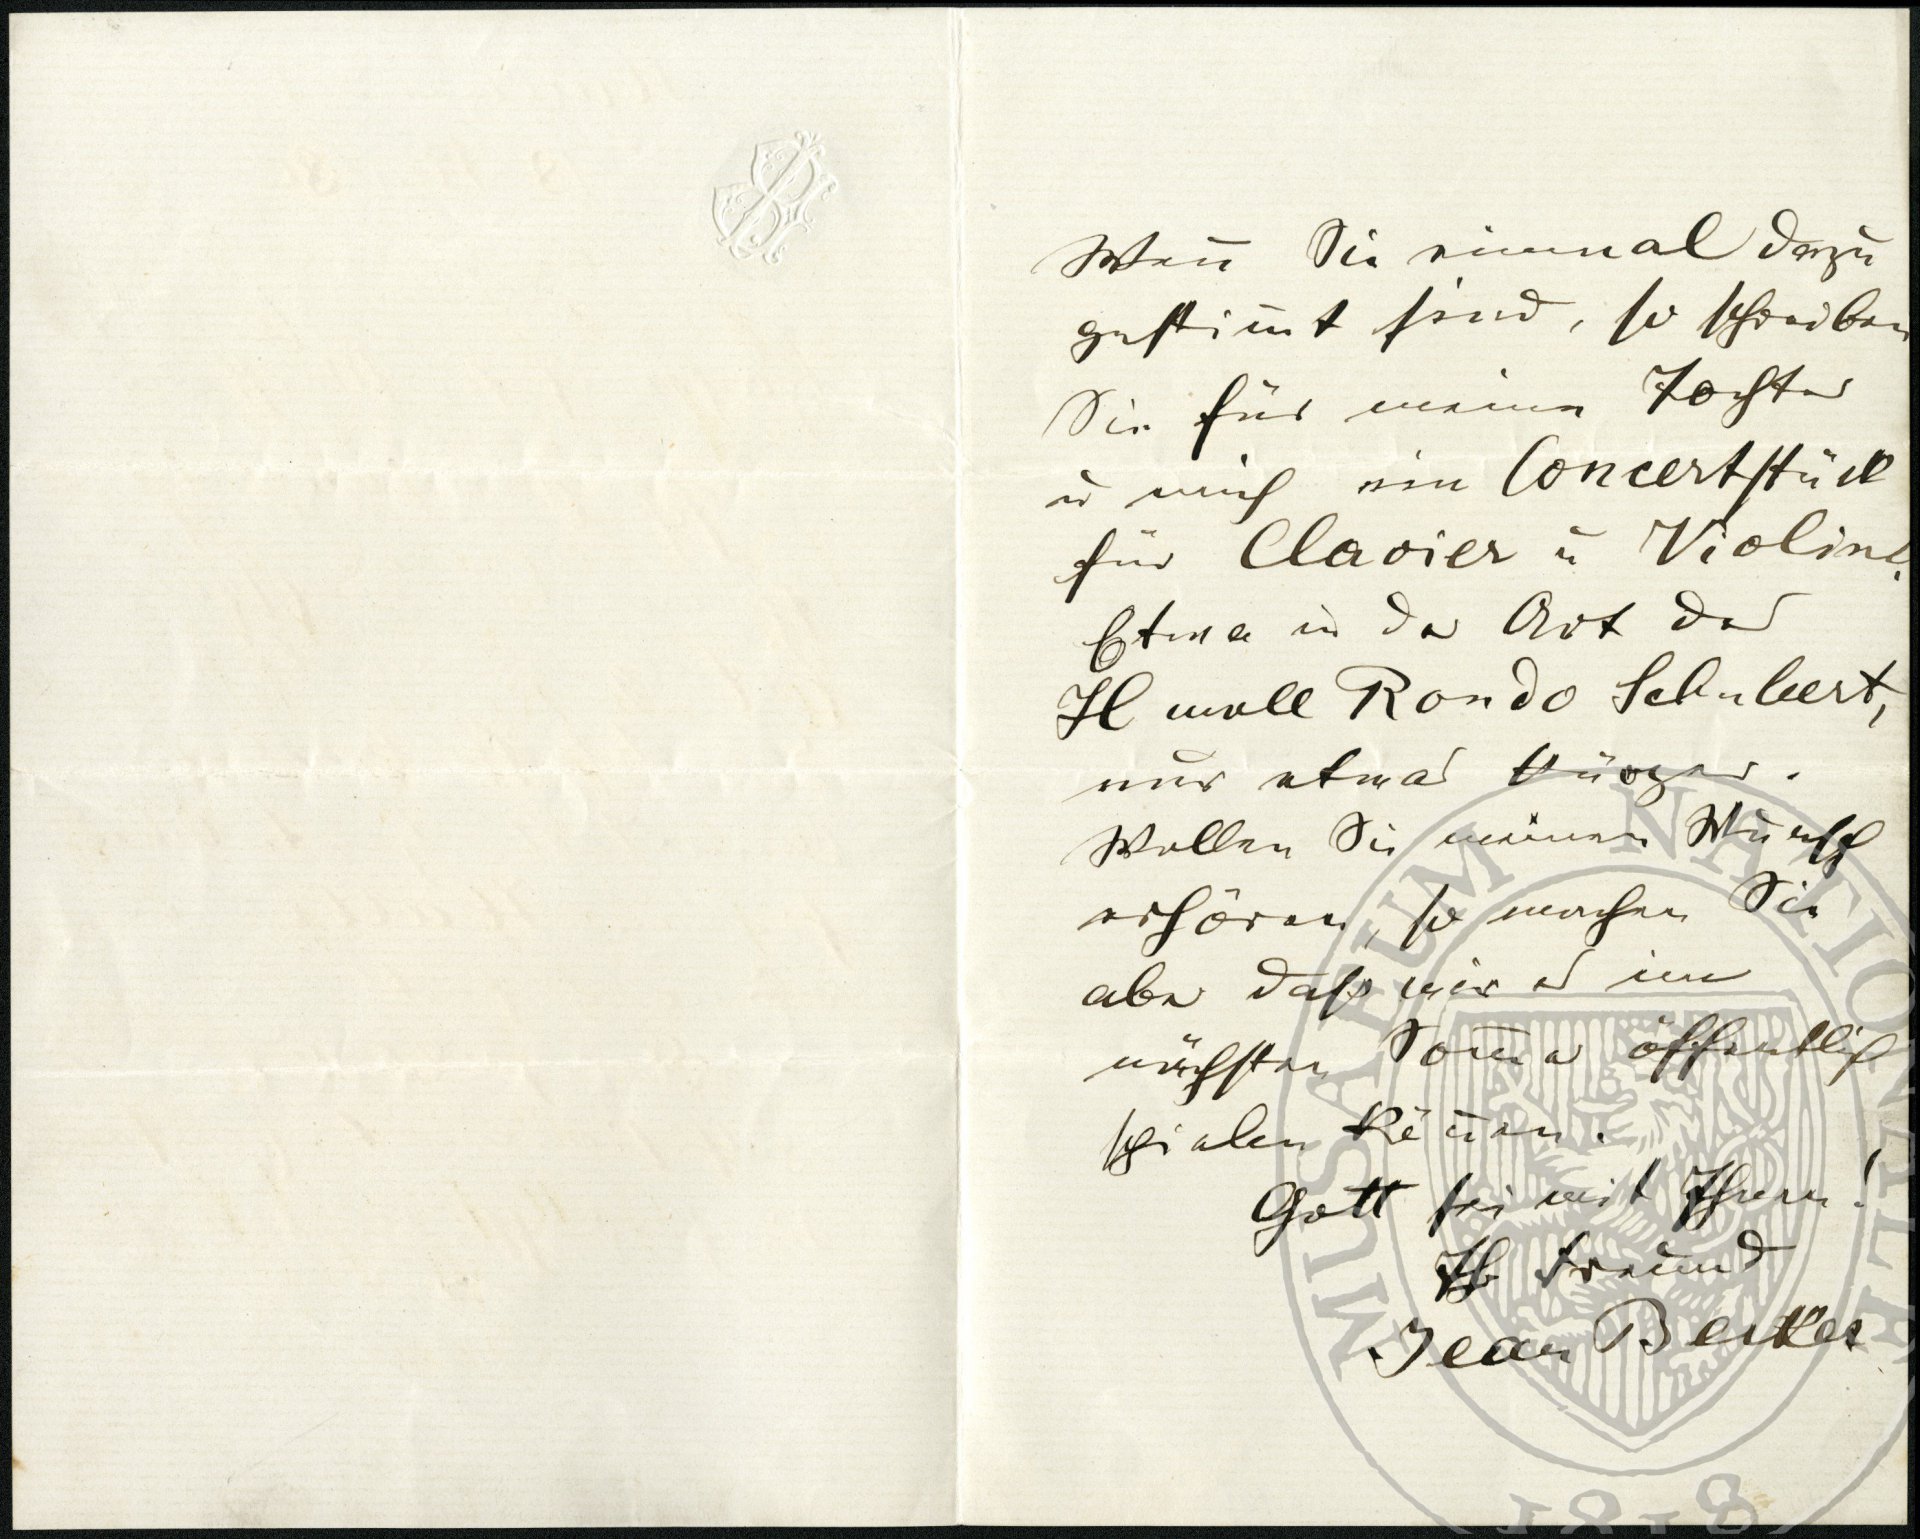 Weñ Sie einmal dazu
gestim̃t sind, so schreiben
Sie für meine Tochter
u mich ein Concertstück
für Clavier u Violine.
Etwa in der Art des
H moll Rondo Schubert,
nur etwas kürzer.
Wollen Sie meinen Wunsch
erhören, so machen Sie
aber daß wir es im
nächsten Som̃er öffentlich
spielen köñen.
Gott sei mit Ihnen!
Ihr Freund
Jean Becker
MUSAEUM NATIONALE
1818